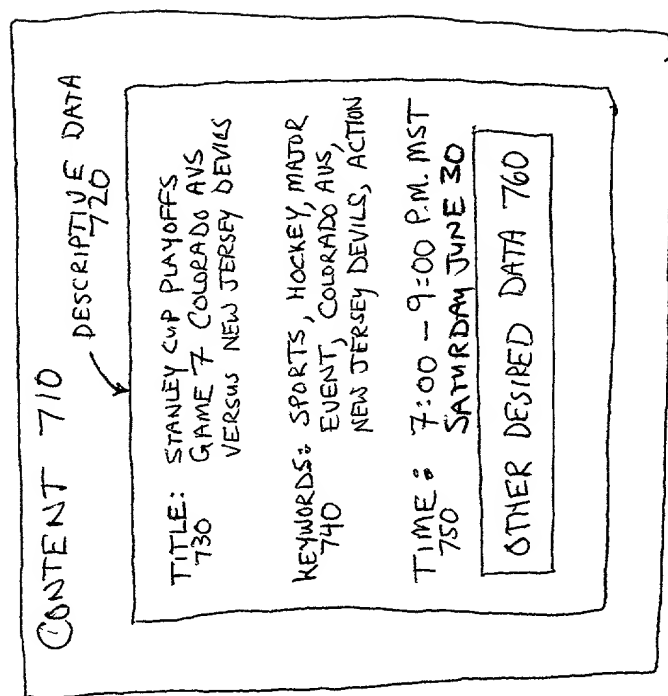 CONTENT 710
DESCRIPTIVE DATA
720
TITLE: STANLEY CUP PLAYOFFS
730 GAME 7 COLORADO AVS
VERSUS NEW JERSEY DEVILS
KEYWORDS: SPORTS, HOCKEY, MAJOR
740 EVENT, COLORADO AVS,
NEW JERSEY DEVILS, ACTION
TIME: 7:00 – 9:00 P.M. MST
750 SATURDAY JUNE 30
OTHER DESIRED DATA 760